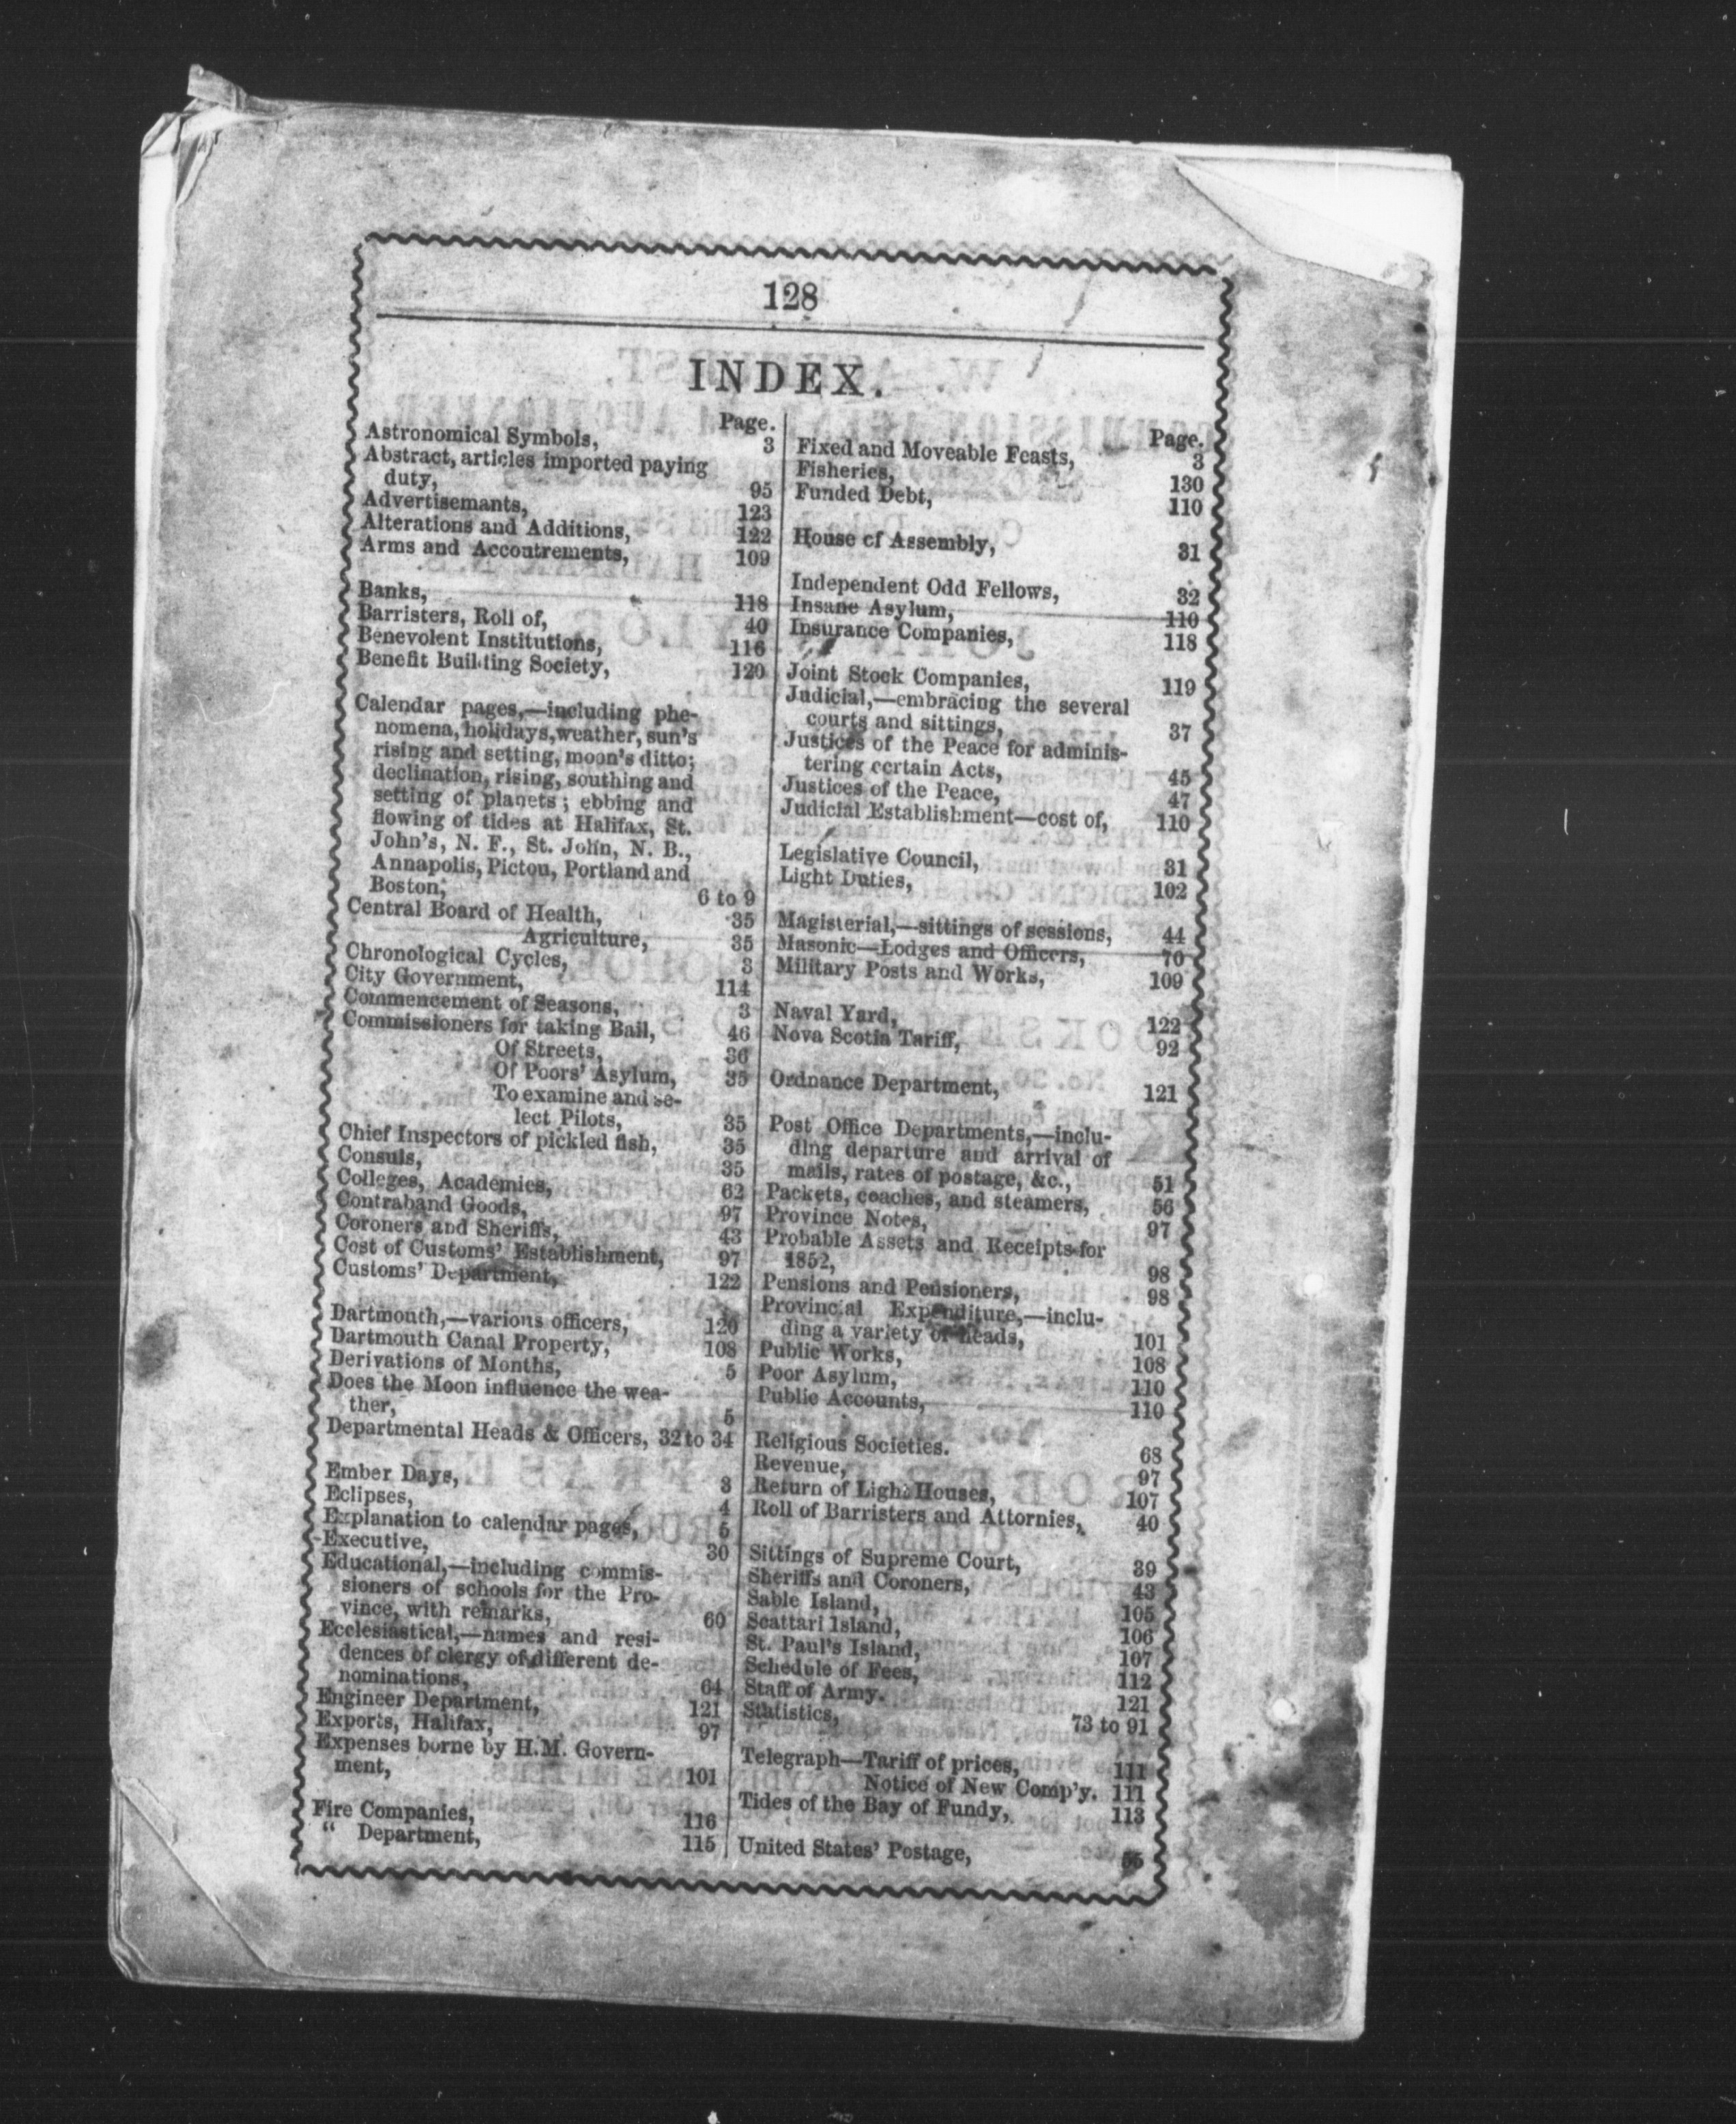 128
INDEX.
Page.
Astronomical Symbols, 3
Abstract, articles imported paying
duty, 95
Advertisemants, 123
Alterations and Additions, 122
Arms and Accoutrements, 109
Banks, 118
Barristers, Roll of, 40
Benevolent Institutions, 116
Benefit Building Society, 120
Calendar pages,—including phe-
nomena, holidays, weather, sun's
rising and setting, moon's ditto;
declination, rising, southing and
setting of planets; ebbing and
flowing of tides at Halifax, St.
John's, N. F., St. John, N. B.,
Annapolis, Pictou, Portland and
Boston, 6 to 9
Central Board of Health, 35
Agriculture, 35
Chronological Cycles, 3
City Government, 114
Commencement of Seasons, 3
Commissioners for taking Bail, 46
Of Streets, 36
Of Poors' Asylum, 35
To examine and se-
lect Pilots, 35
Chief Inspectors of pickled fish, 35
Consuls, 35
Colleges, Academies, 62
Contraband Goods, 97
Coroners and Sheriffs, 43
Cost of Customs' Establishment, 97
Customs' Department, 122
Dartmouth,—various officers, 120
Dartmouth Canal Property, 108
Derivations of Months, 5
Does the Moon influence the wea-
ther, 5
Departmental Heads & Officers, 32 to 34
Ember Days, 3
Eclipses, 4
Explanation to calendar pages, 5
Executive, 30
Educational,—including commis-
sioners of schools for the Pro-
vince, with remarks, 60
Ecclesiastical,—names and resi-
dences of clergy of different de-
nominations, 64
Engineer Department, 121
Exports, Halifax, 97
Expenses borne by H.M. Govern-
ment, 101
Fire Companies, 116
“ Department, 115
Page.
Fixed and Moveable Feasts, 3
Fisheries, 130
Funded Debt, 110
House of Assembly, 31
Independent Odd Fellows, 32
Insane Asylum, 110
Insurance Companies, 118
Joint Stock Companies, 119
Judicial,—embracing the several
courts and sittings, 37
Justices of the Peace for adminis-
tering certain Acts, 45
Justices of the Peace, 47
Judicial Establishment—cost of, 110
Legislative Council, 31
Light Duties, 102
Magisterial,—sittings of sessions, 44
Masonic—Lodges and Officers, 70
Military Posts and Works, 109
Naval Yard, 122
Nova Scotia Tariff, 92
Ordnance Department, 121
Post Office Departments,—inclu-
ding departure and arrival of
mails, rates of postage, &c., 51
Packets, coaches, and steamers, 56
Province Notes, 97
Probable Assets and Receipts for
1852, 98
Pensions and Pensioners, 98
Provincial Expenditure,—inclu-
ding a variety of heads, 101
Public Works, 108
Poor Asylum, 110
Public Accounts, 110
Religious Societies. 68
Revenue, 97
Return of Light Houses, 107
Roll of Barristers and Attornies, 40
Sittings of Supreme Court, 39
Sheriffs and Coroners, 43
Sable Island, 105
Scattari Island, 106
St. Paul's Island, 107
Schedule of Fees, 112
Staff of Army. 121
Statistics, 73 to 91
Telegraph—Tariff of prices, 111
Notice of New Comp'y. 111
Tides of the Bay of Fundy, 113
United States' Postage,